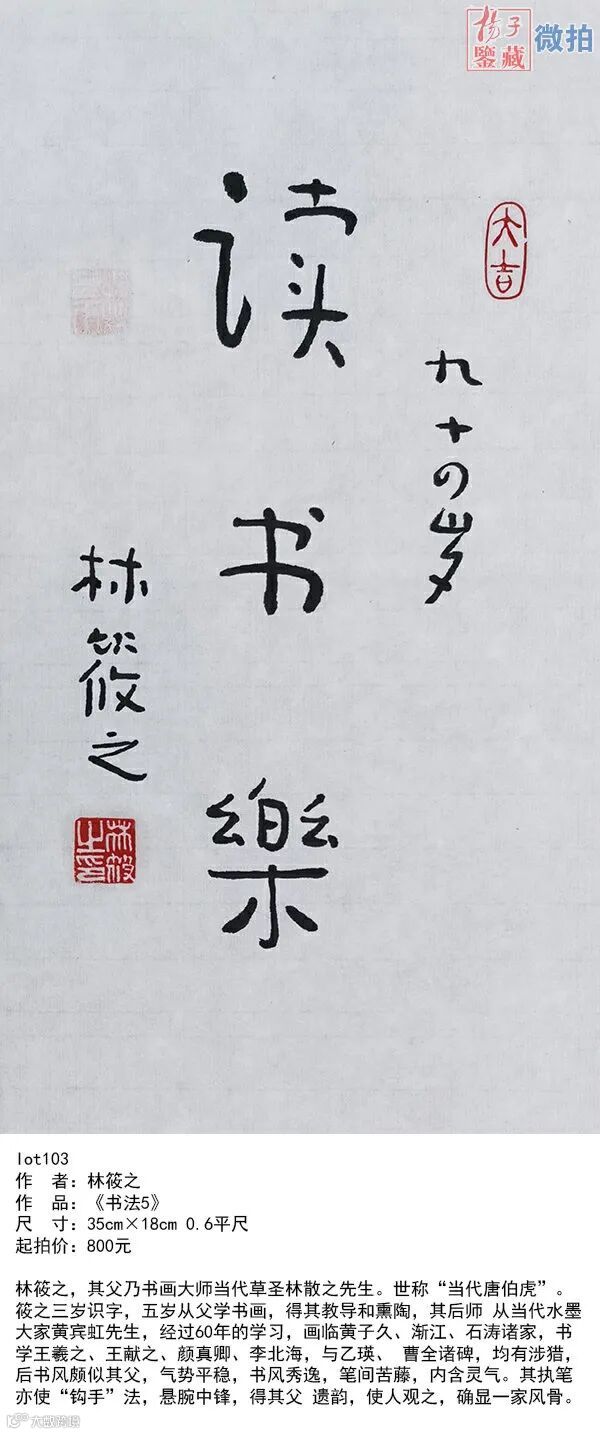 揚子
鑒藏
微拍
大吉
九十四岁
读书樂
林筱之
林筱之印
lot103
作 者：林筱之
作 品：《书法5》
尺 寸：35cm×18cm 0.6平尺
起拍价：800元
林筱之，其父乃书画大师当代草圣林散之先生。世称“当代唐伯虎”。
筱之三岁识字，五岁从父学书画，得其教导和熏陶，其后师 从当代水墨
大家黄宾虹先生，经过60年的学习，画临黄子久、渐江、石涛诸家，书
学王羲之、王献之、颜真卿、李北海，与乙瑛、 曹全诸碑，均有涉猎，
后书风颇似其父，气势平稳，书风秀逸，笔间苦藤，内含灵气。其执笔
亦使“钩手”法，悬腕中锋，得其父 遗韵，使人观之，确显一家风骨。